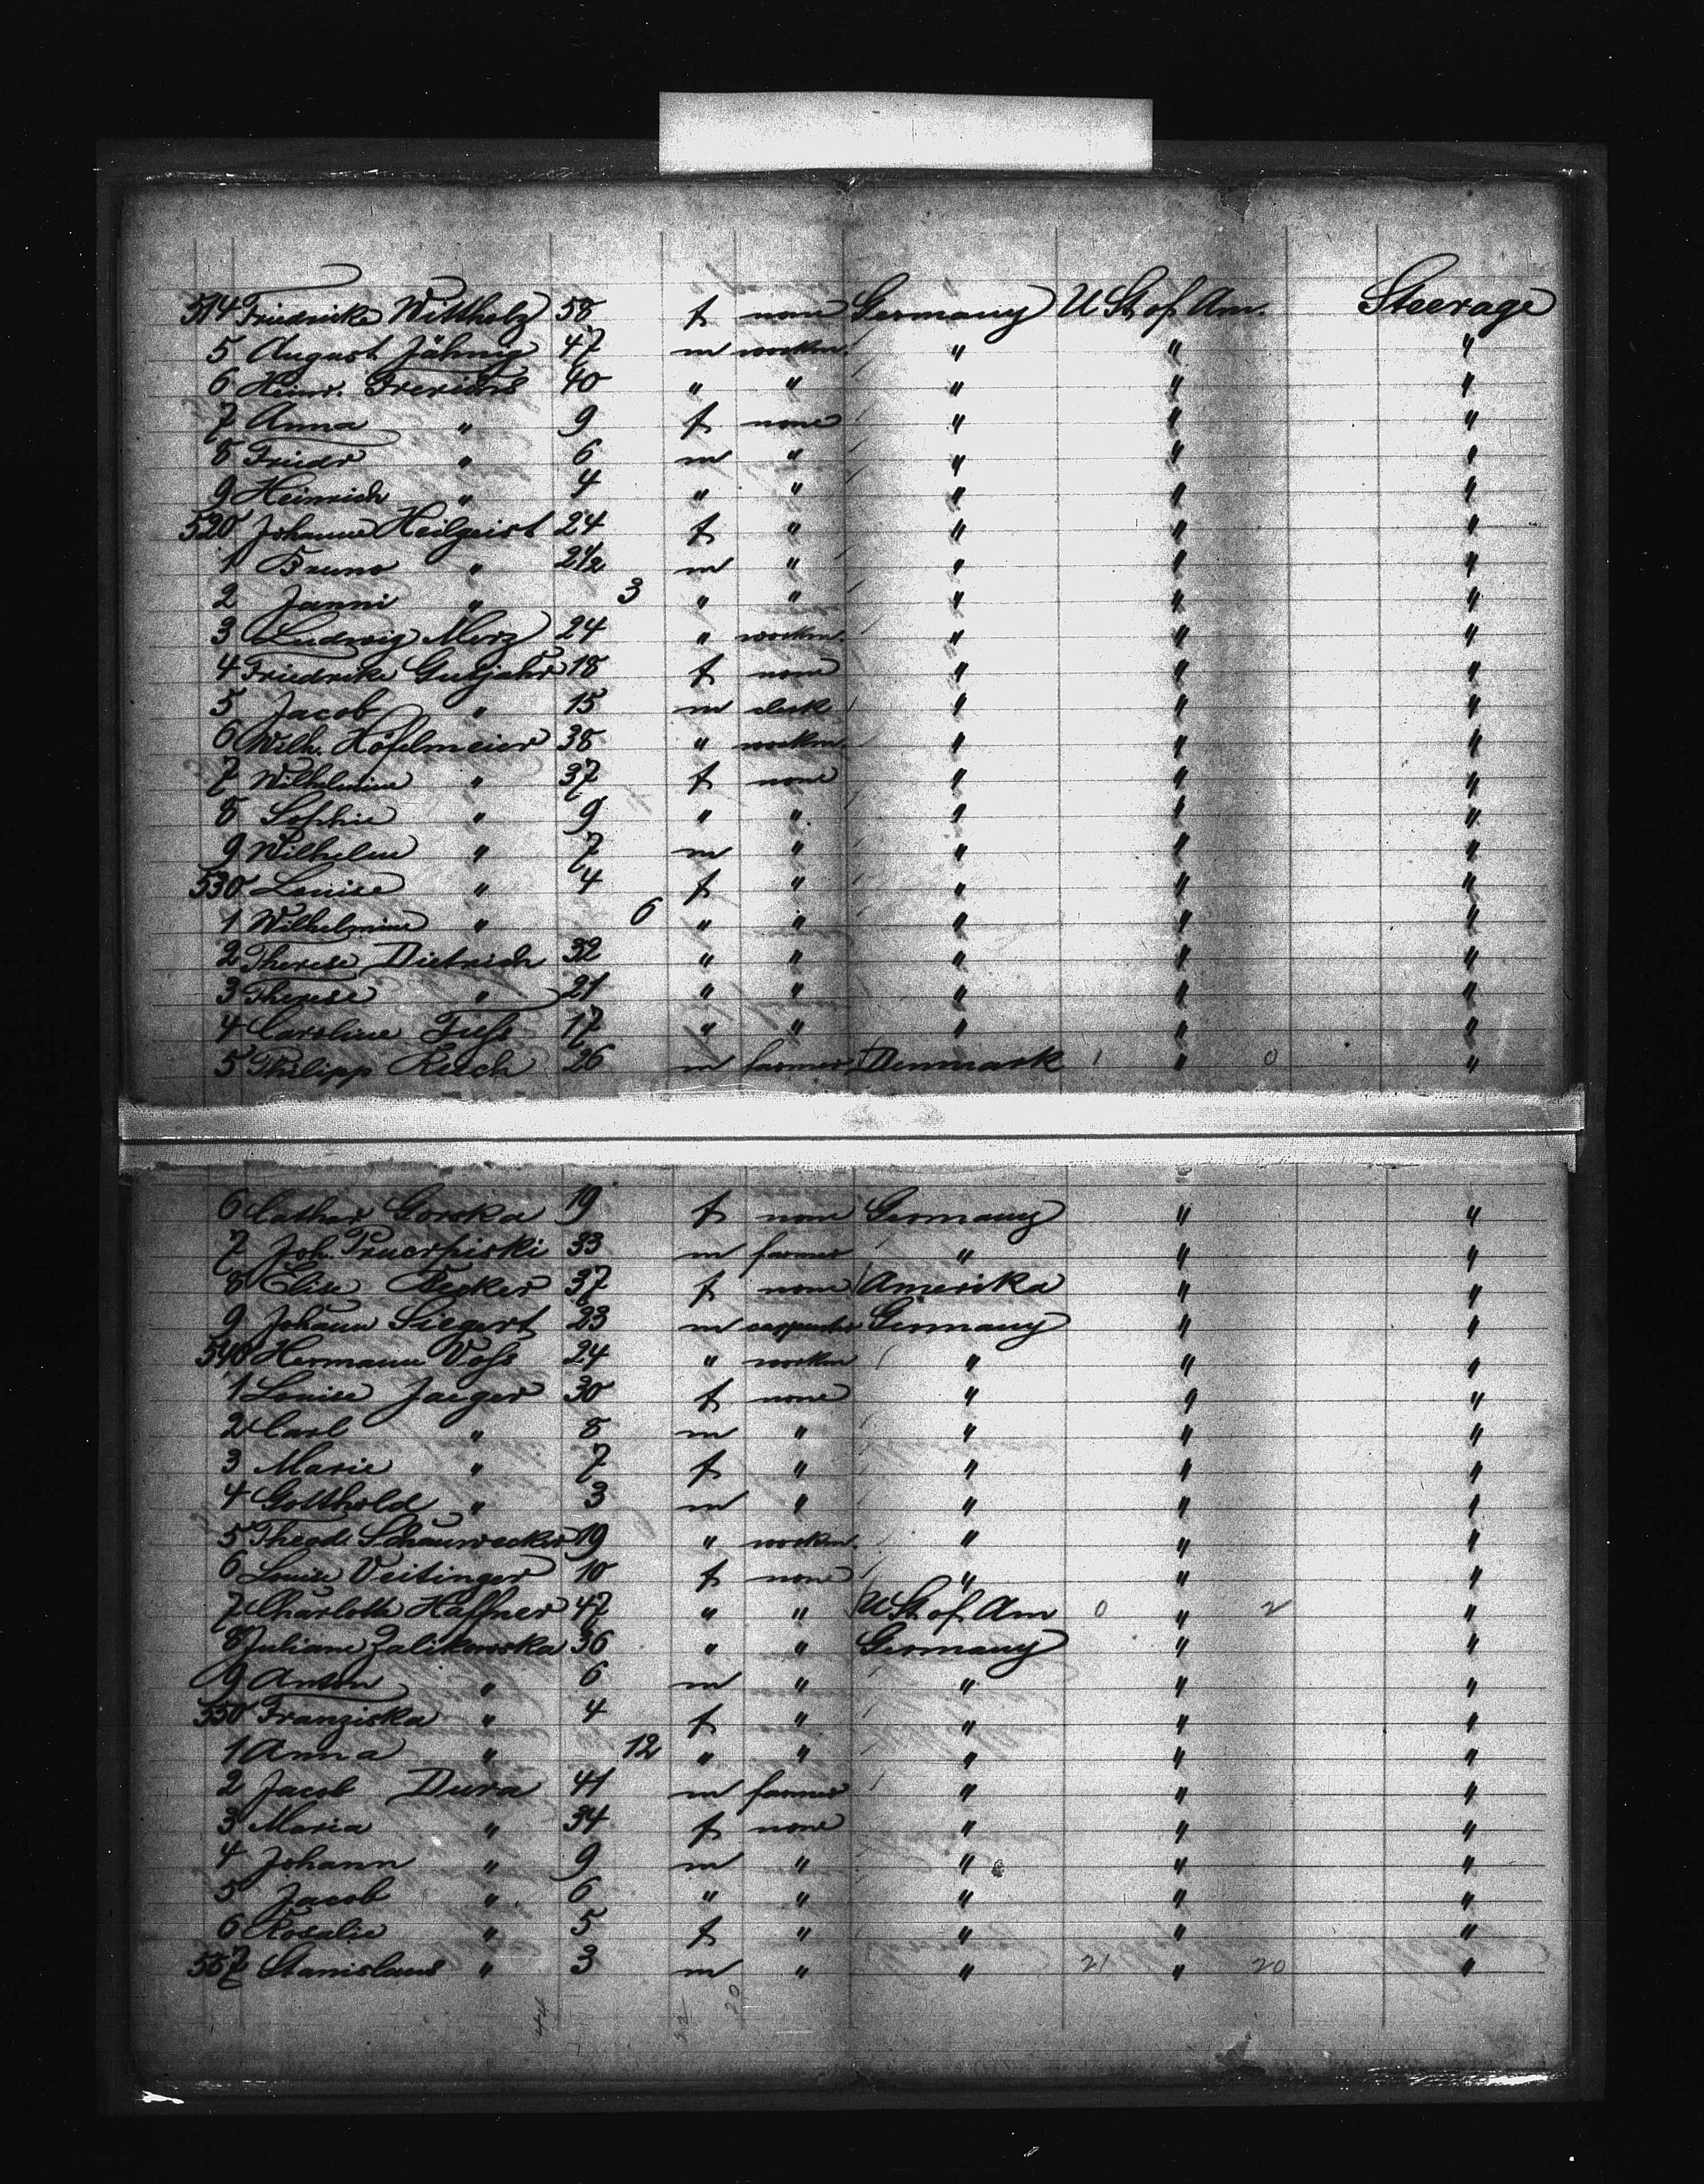 514 Friedricke Wittholz 58 f none Germany U St of Am. Steerage
5 August Jähnig 47 m workm. " " "
6 Heinr. Frerichs 40 " " " " "
7 Anna " 9 f none " " "
8 Friedr " 6 m " " " "
9 Heinrich " 4 " " " " "
520 Johanne Heilgeist 24 f " " " "
1 Bruno " 2 1/2 m " " " "
2 Janni " 3 " " " " "
3 Ludwig Merz 24 " workm. " " "
4 Friedricke Gutjahr 18 f none " " "
5 Jacob " 15 m clerk " " "
6 Wilh. Höfelmeier 38 " workm. " " "
7 Wilhelmine " 37 f none " " "
8 Sophie " 9 " " " " "
9 Wilhelm " 7 m " " " "
530 Louise " 4 f " " " "
1 Wilhelmine " 6 " " " " "
2 Therese Dietrich 32 " " " " "
3 Therese " 21 " " " " "
4 Caroline Fuhs 17 " " " " "
5 Philipp Reich 26 m farmer Denmark 1 " 0 "
6 Cathar Gorska 19 f none Germany " "
7 Joh. 33 m farmer " " "
8 Elise Becker 37 f none Amerika " "
9 Johann Siegert 23 m carpenter Germany " "
540 Hermann Voss 24 " workm " " "
1 Louise Jaeger 30 f none " " "
2 Carl " 8 m " " " "
3 Marie " 7 f " " " "
4 Gotthold " 3 m " " " "
5 Theod. Schauwecker 19 " workm. " " "
6 Louise Veitinger 10 f none " " "
7 Charlotte Haffner 47 " " U St of Am 0 " 2 "
8 Juliane Zalikowska 36 " " Germany " "
9 Anton " 6 m " " " "
550 Franziska " 4 f " " " "
1 Anna " 12 " " " " "
2 Jacob Dura 41 m farmer " " "
3 Maria " 34 f none " " "
4 Johann " 9 m " " " "
5 Jacob " 6 " " " " "
6 Rosalie " 5 f " " " "
557 Stanislaus " 3 m " " 21 " 20 "
44 22 20